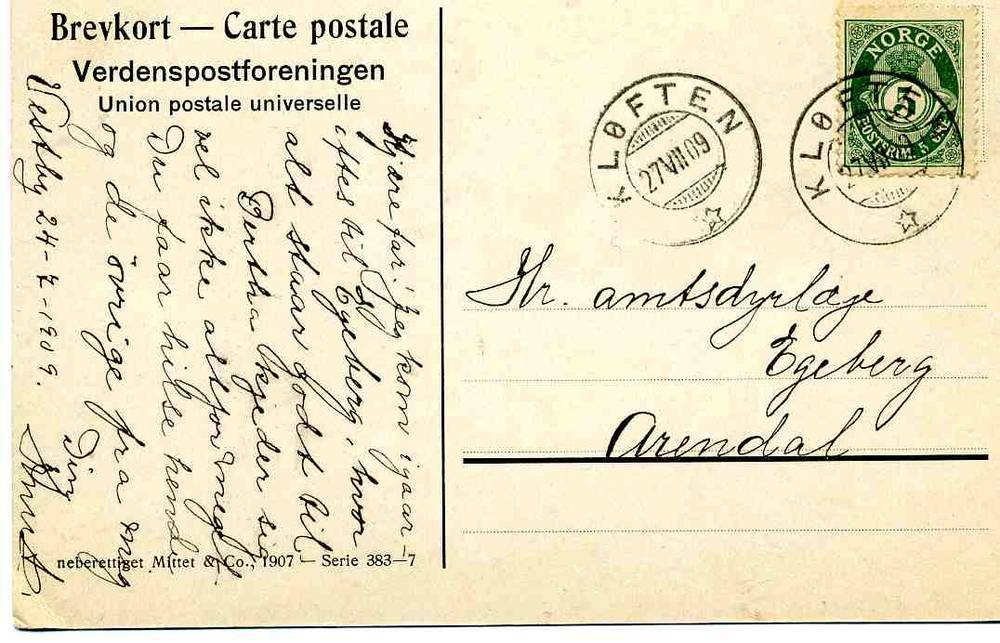 Brevkort — Carte postale
Verdenspostforeningen
Union postale universelle
NORGE
5
POSTFRIM. 5 ØRE
KLØFTEN
27 VII 09
KLØFTEN
27 VII
Hr. amtsdyrlæge
Egeberg
Arendal
Kjære far! Jeg kom igaar-
iftes til Egeberg, hvor
alt staar godt til.
Bertha kjeder sig
vel ikke altfor meget.
Du faar hilse hende
og de övrige fra mig
Din
Vestby 24-7-1909.
neberettiget Mittet & Co., 1907 — Serie 383—7